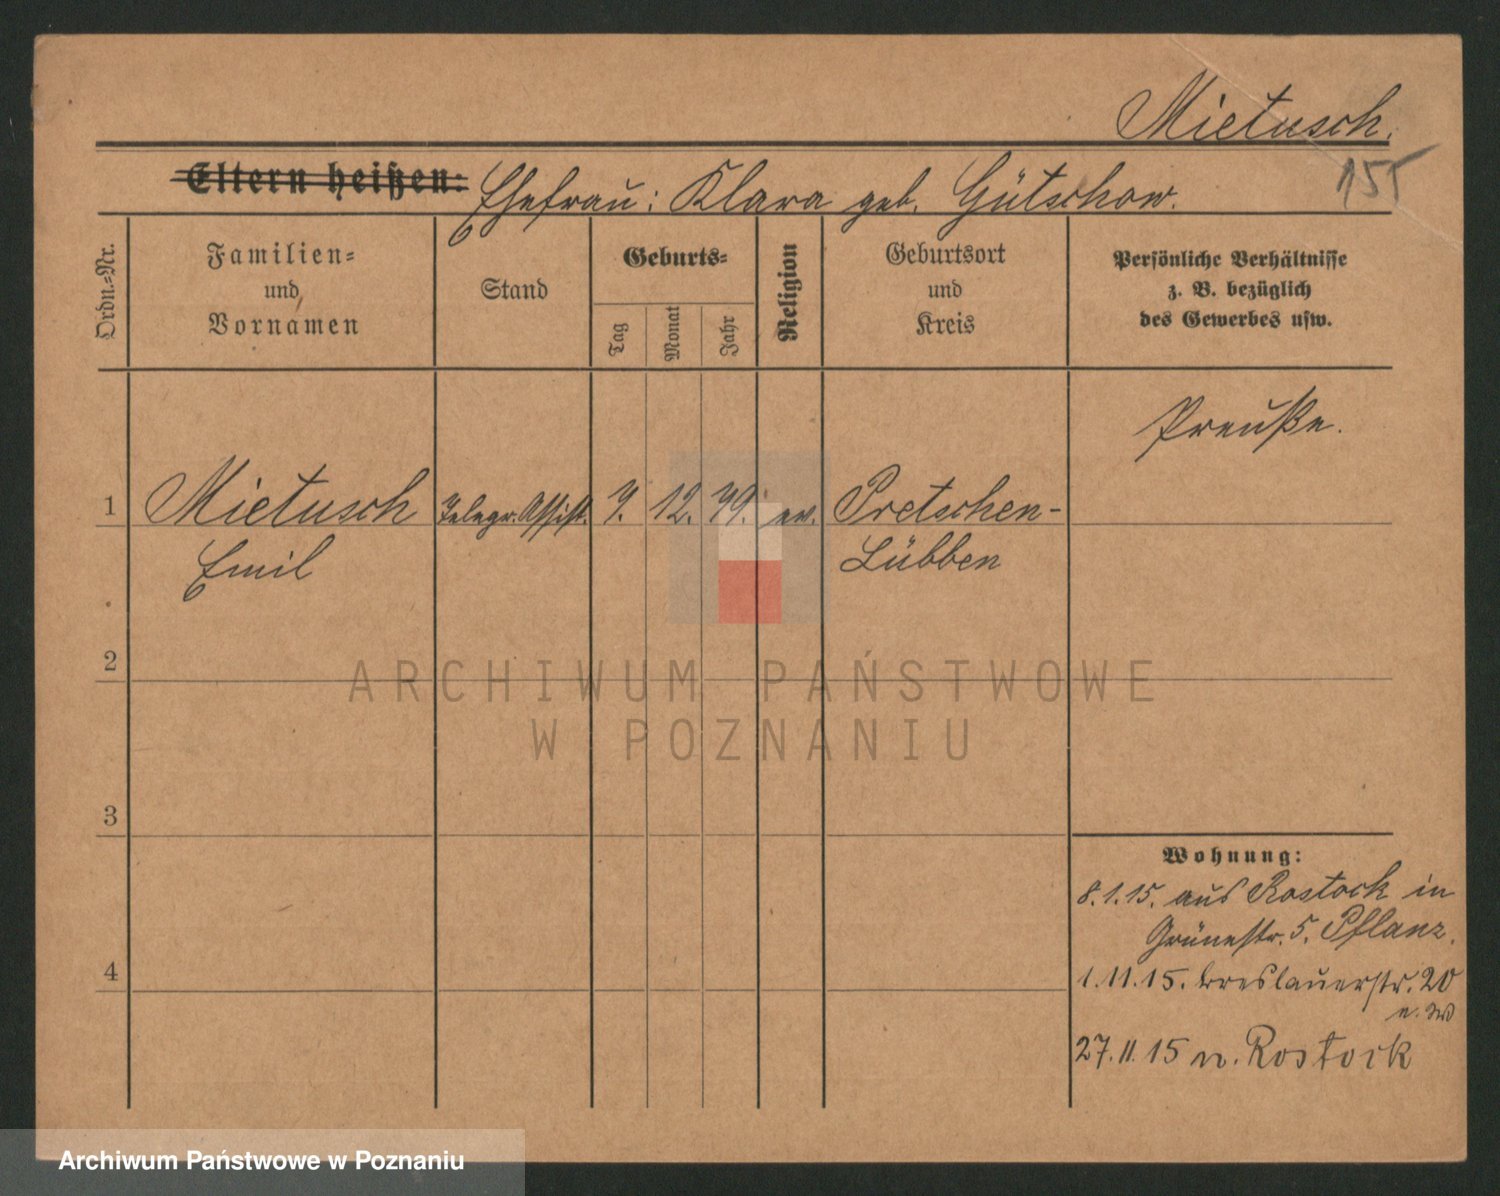 Mietusch.
155
Eltern heißen: Ehefrau: Klara geb. Gütschow.
Ordn.-Nr.
Familien-
und
Vornamen
Stand
Geburts-
Tag
Monat
Jahr
Religion
Geburtsort
und
Kreis
Persönliche Verhältnisse
z. B. bezüglich
des Gewerbes usw.
Preuße.
1 Mietusch Telegr. Assist. 7. 12. 79. ev. Pretschen-
Emil Lübben
2
ARCHIWUM PAŃSTWOWE
W POZNANIU
3
Wohnung:
8.1.15. aus Rostock in
Grünestr. 5. Pflanz.
4
1.11.15. Breslauerstr. 20
27.11.15 n. Rostock
Archiwum Państwowe w Poznaniu